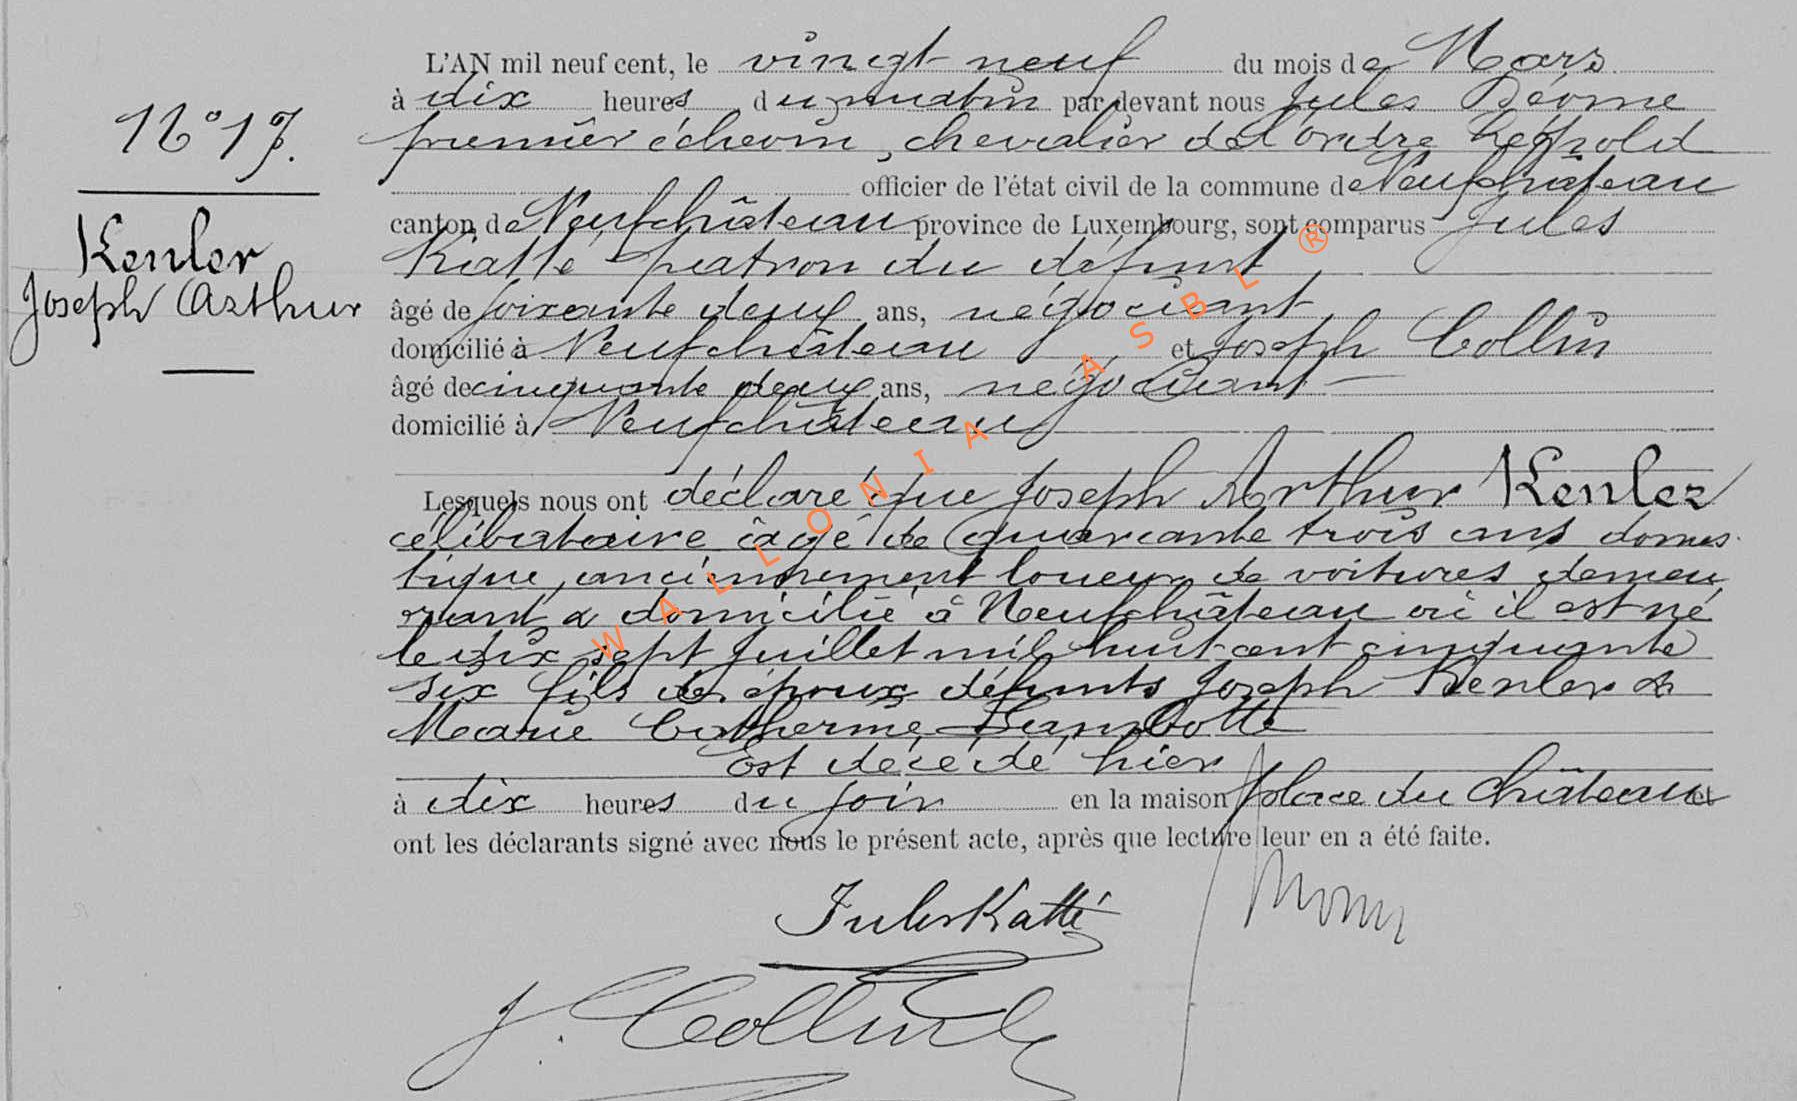 N° 17.
Kenler
Joseph Arthur
L'AN mil neuf cent, le vingt neuf du mois de Mars
à dix heures du matin par devant nous Jules
premier échevin, chevalier de l'ordre Léopold
officier de l'état civil de la commune de Neufchâteau
canton de Neufchâteau province de Luxembourg, sont comparus Jules
Katté patron du défunt
âgé de soixante deux ans, négociant
domicilié à Neufchâteau et Joseph Collin
âgé de cinquante deux ans, négociant
domicilié à Neufchâteau
Lesquels nous ont déclaré que Joseph Arthur Kenler
célibataire âgé de quarante trois ans domes
tique, anciennement loueur de voitures demeu
rant & domicilié à Neufchâteau où il est né
le dix sept Juillet mil huit cent cinquante
six fils des époux défunts Joseph Kenler &
Marie Catherine Lambotte
Est décédé hier
à dix heures du soir en la maison place du Château et
ont les déclarants signé avec nous le présent acte, après que lecture leur en a été faite.
Jules Katté
J. Collin
WALLONIA ASBL ®